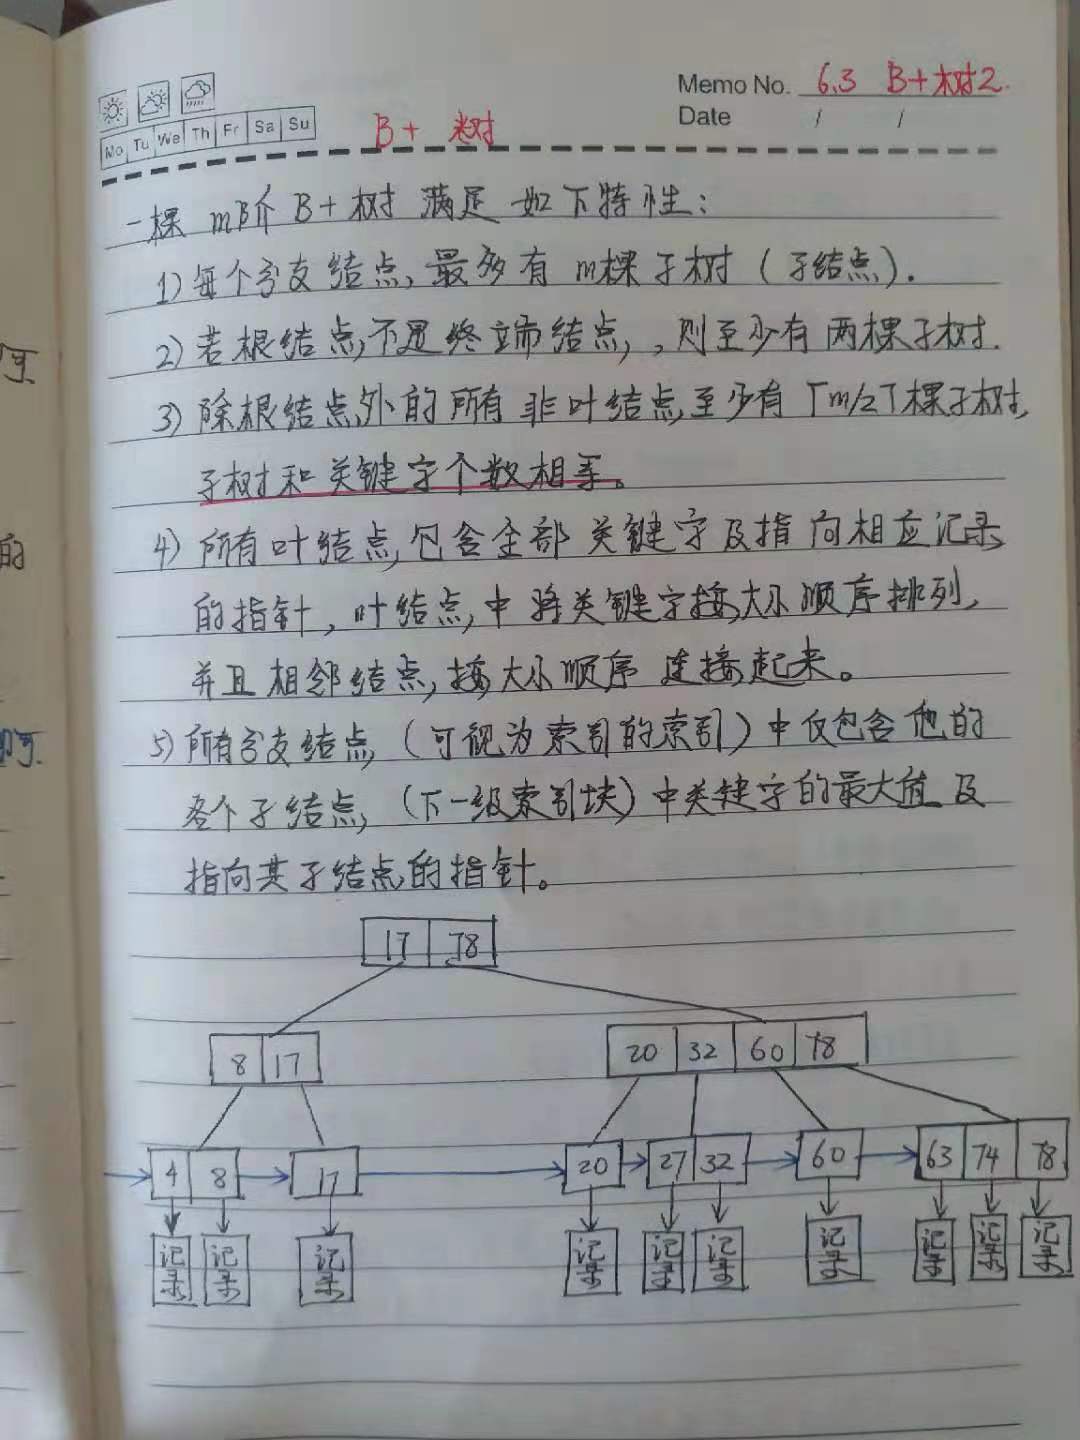 Memo No. 6.3 B+树2.
Date / /
Mo Tu We Th Fr Sa Su
B+ 树
一棵 m阶 B+树 满足 如下特性:
1) 每个分支结点, 最多有 m棵子树 (子结点).
2) 若根结点不是终端结点, , 则至少有两棵子树.
3) 除根结点外的所有 非叶结点至少有「m/2⌉棵子树,
子树和关键字个数相等。
4) 所有叶结点包含全部关键字及指向相应记录
的指针, 叶结点中将关键字按大小顺序排列,
并且相邻结点按大小顺序 连接起来。
5) 所有分支结点 (可视为索引的索引) 中仅包含他的
各个子结点 (下一级索引块) 中关键字的最大值及
指向其子结点的指针。
17 78
8 17 20 32 60 78
4 8 17 20 27 32 60 63 74 78
记录 记录 记录 记录 记录 记录 记录 记录 记录 记录
的